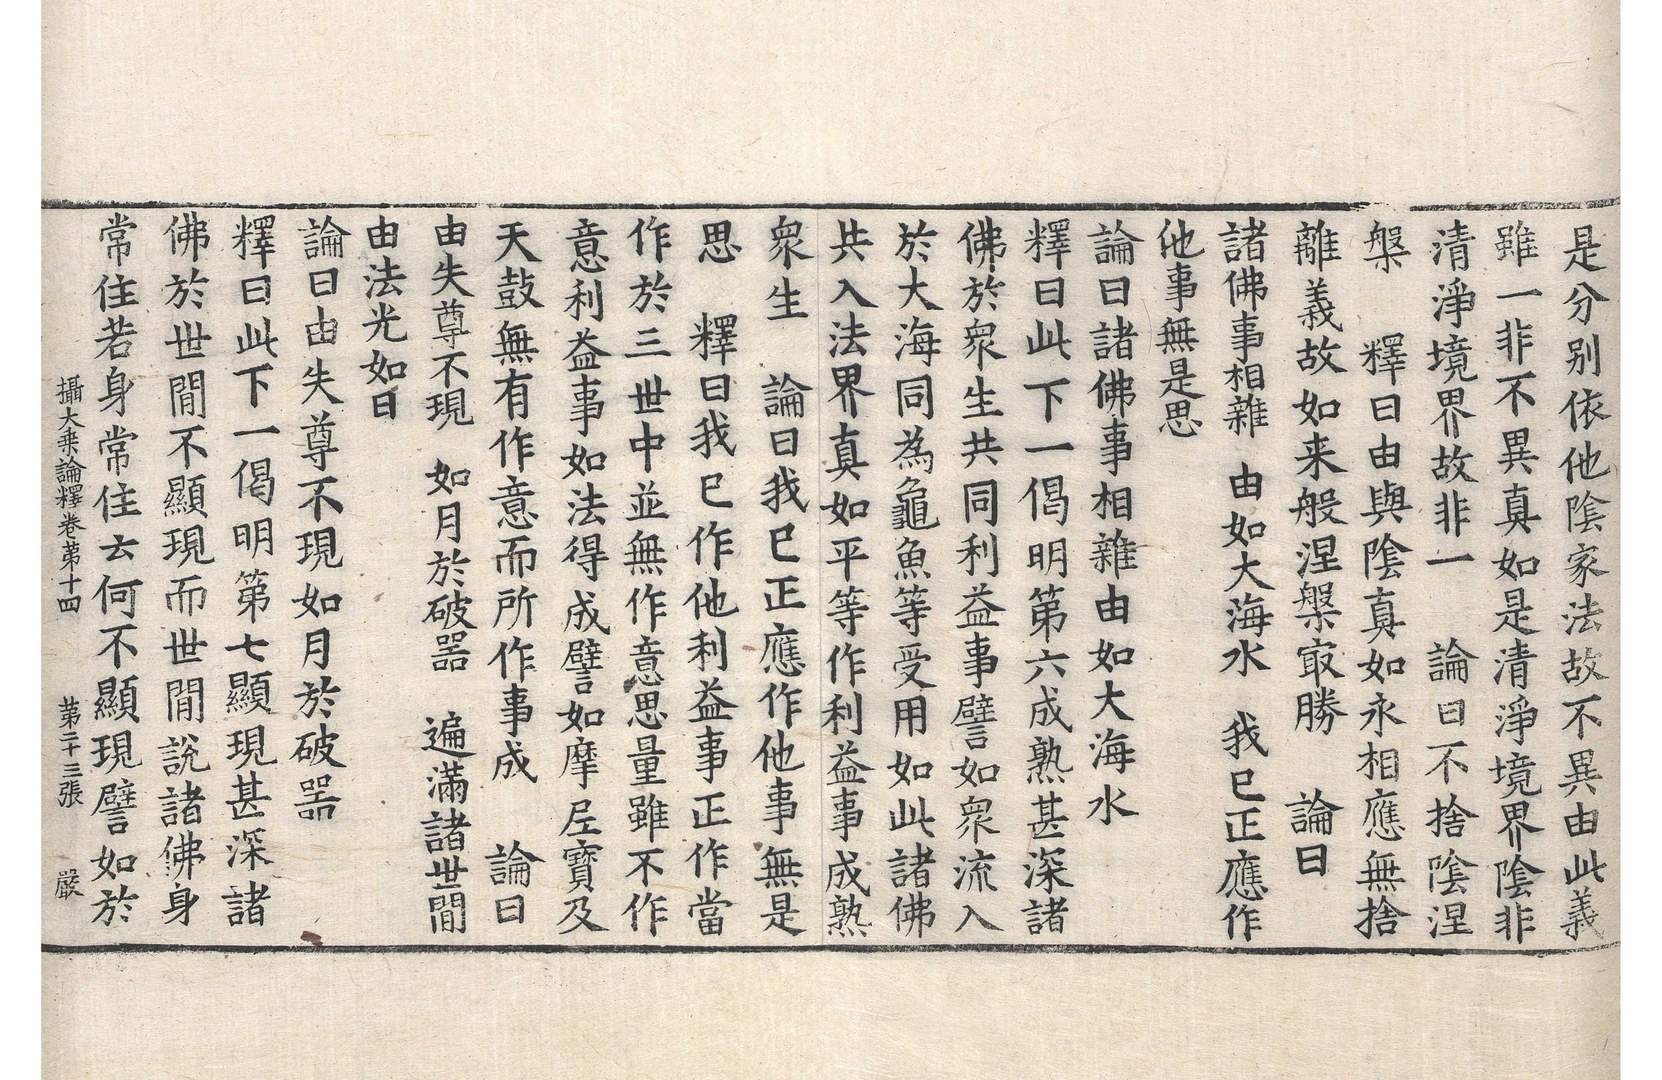 是分別依他陰家法故不異由此義
雖一非不異真如是清淨境界陰非
清淨境界故非一　論曰不捨陰涅
槃　釋曰由與陰真如永相應無捨
離義故如来般涅槃㝡勝　論曰
諸佛事相雜　由如大海水　我已正應作
他事無是思
論曰諸佛事相雜由如大海水
釋曰此下一偈明第六成熟甚深諸
佛於衆生共同利益事譬如衆流入
於大海同為龜魚等受用如此諸佛
共入法界真如平等作利益事成熟
衆生　論曰我已正應作他事無是
思　釋曰我已作他利益事正作當
作於三世中並無作意思量雖不作
意利益事如法得成譬如摩尼寶及
天鼓無有作意而所作事成　論曰
由失尊不現　如月於破器　遍滿諸世間
由法光如日
論曰由失尊不現如月於破器
釋曰此下一偈明第七顯現甚深諸
佛於世間不顯現而世間說諸佛身
常住若身常住云何不顯現譬如於
攝大乘論釋卷第十四　第二十三張　嚴